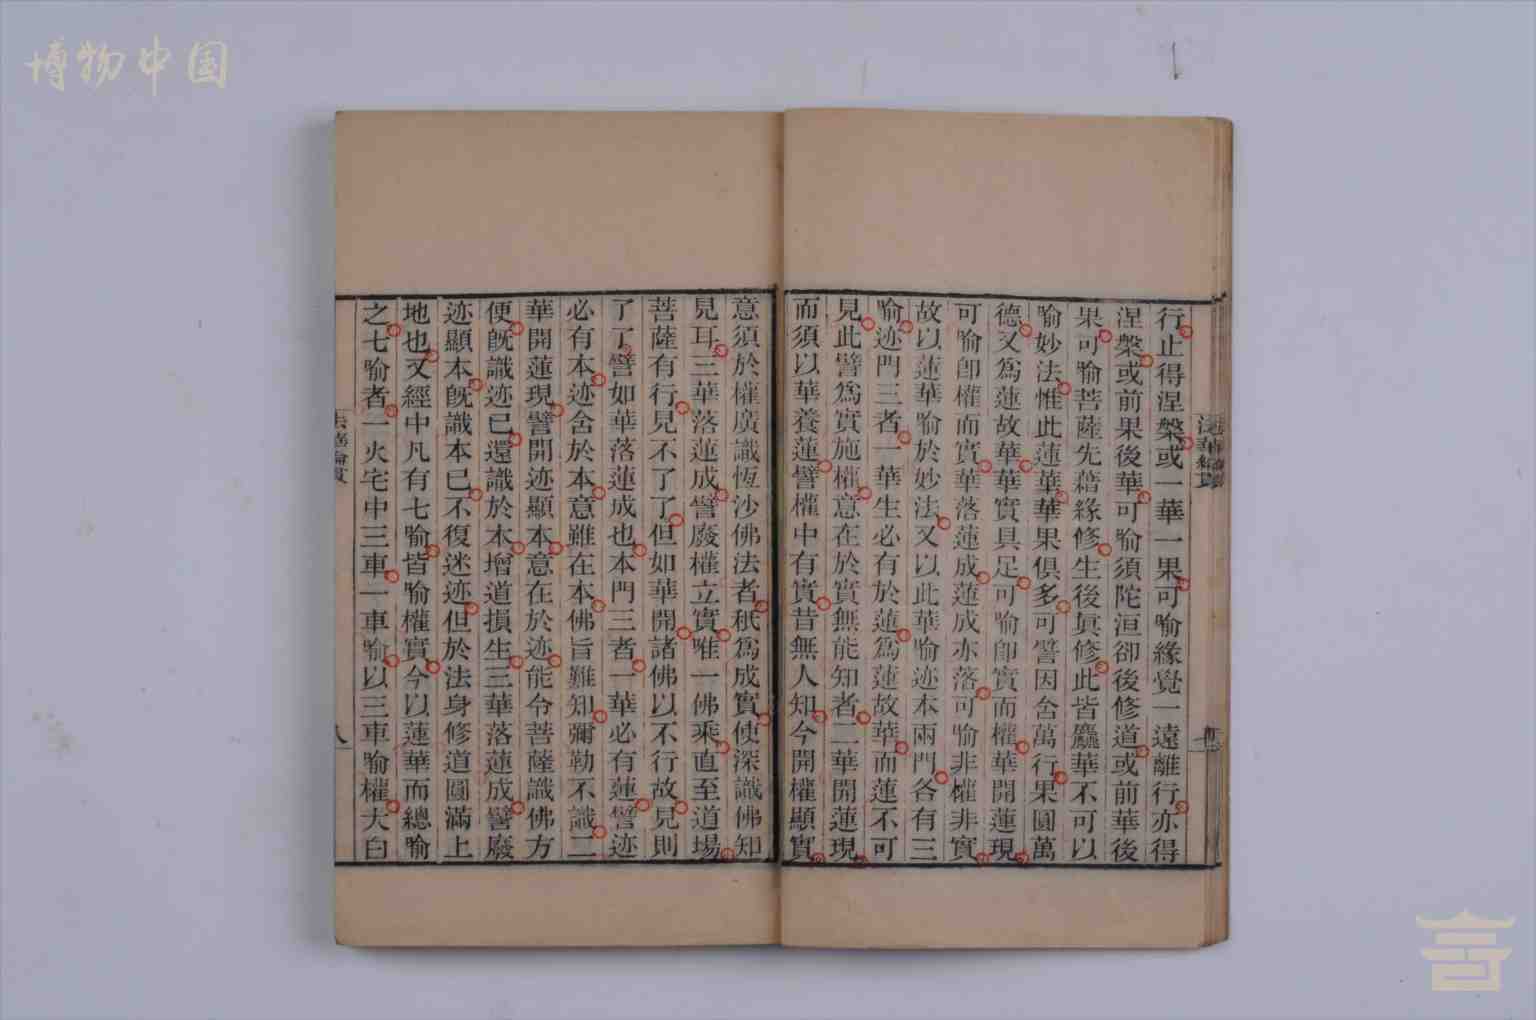 博物中国
行止得涅槃或一華一果可喻緣覺一遠離行亦得
涅槃或前果後華可喻須陀洹卻後修道或前華後
果可喻菩薩先藉緣修生後眞修此皆麤華不可以
喻妙法惟此蓮華華果俱多可譬因含萬行果圓萬
德又爲蓮故華華實具足可喻卽實而權華開蓮現
可喻卽權而實華落蓮成蓮成亦落可喻非權非實
故以蓮華喻於妙法又以此華喻迹本兩門各有三
喻迹門三者一華生必有於蓮爲蓮故華而蓮不可
見此譬爲實施權意在於實無能知者二華開蓮現
而須以華養蓮譬權中有實昔無人知今開權顯實
意須於權廣識恆沙佛法者秖爲成實使深識佛知
見耳三華落蓮成譬廢權立實唯一佛乘直至道場
菩薩有行見不了了但如華開諸佛以不行故見則
了了譬如華落蓮成也本門三者一華必有蓮譬迹
必有本迹含於本意雖在本佛旨難知彌勒不識二
華開蓮現譬開迹顯本意在於迹能令菩薩識佛方
便旣識迹已還識於本增道損生三華落蓮成譬廢
迹顯本旣識本已不復迷迹但於法身修道圓滿上
地也又經中凡有七喻皆喻權實今以蓮華而總喻
之七喻者一火宅中三車一車喻以三車喻權大白